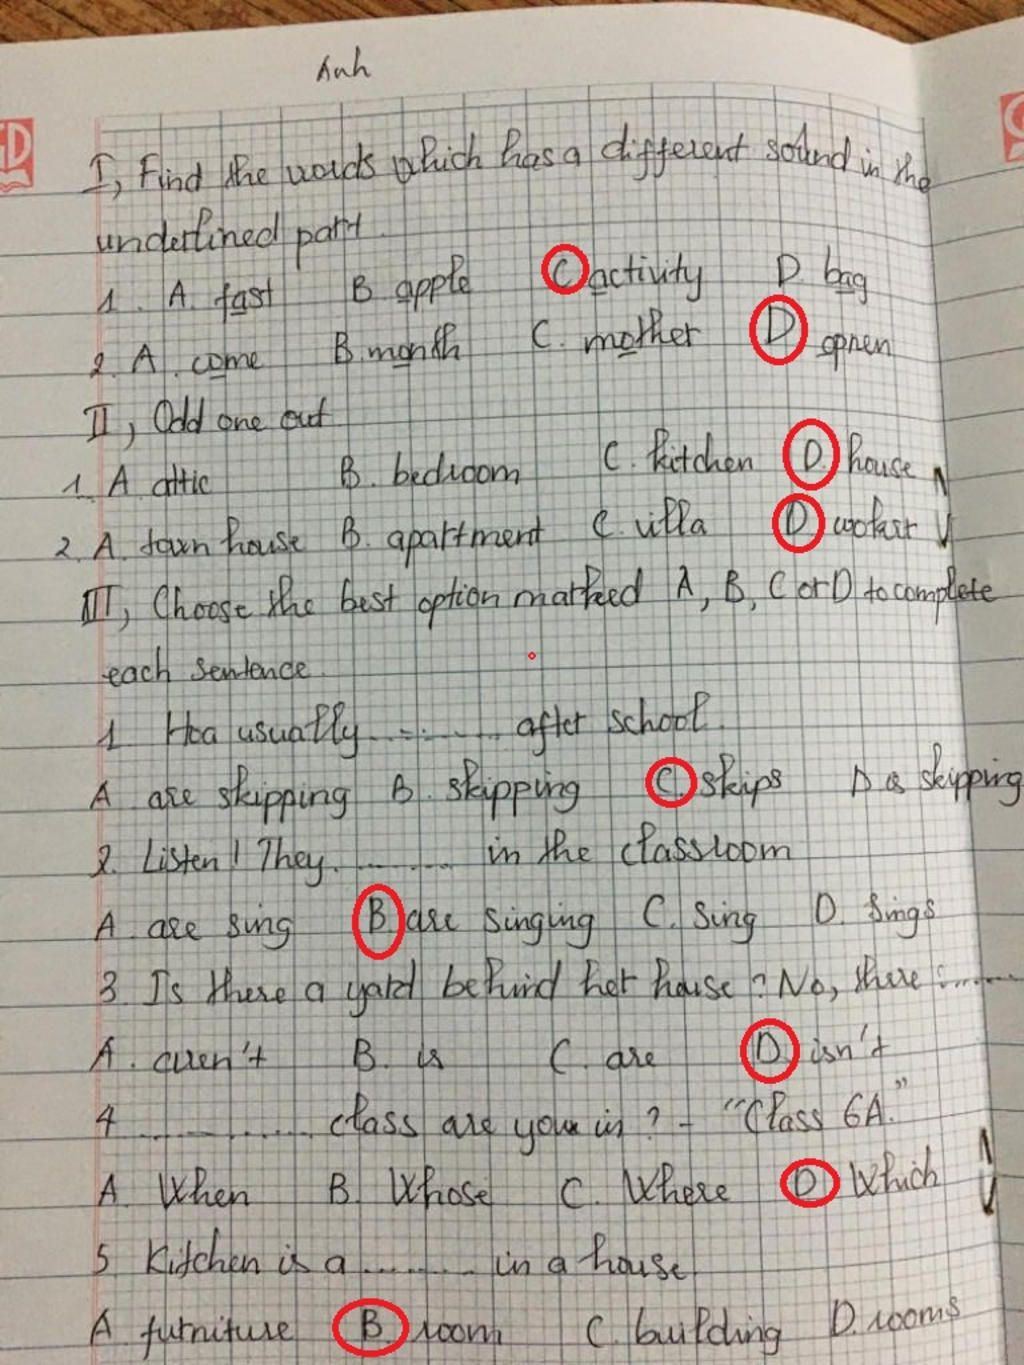 Anh
I, Find the words which has a different sound in the
underlined part
1. A. fast B apple C activity D. bag
2. A. come B. month C. mother D opnen
II, Odd one out
1. A attic B. bedroom C. kitchen D. house
2. A. town house B. apartment C. villa D
III, Choose the best option marked A, B, C or D to complete
each sentence.
1 Hoa usually .......... after school.
A are skipping B. skipping C. skips D is skipping
2. Listen! They .......... in the classroom
A are sing B are singing C. Sing D. Sings
3 Is there a yard behind her house? No, there ........
A. aren't B. is C. are D. isn't
4 .............. class are you in? - "Class 6A."
A When B. Whose C. Where D Which
5 Kitchen is a .......... in a house
A furniture B. room C. building D. rooms